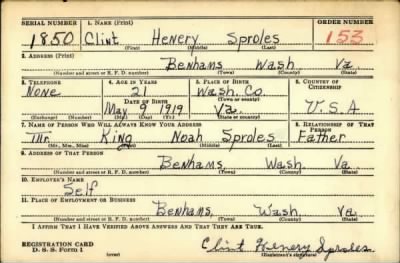 SERIAL NUMBER 1. NAME (Print) ORDER NUMBER
1850 Clint Henery Sproles 153
(First) (Middle) (Last)
2. ADDRESS (Print)
Benhams Wash Va
(Number and street or R. F. D. number) (Town) (County) (State)
3. TELEPHONE 4. AGE IN YEARS 5. PLACE OF BIRTH 6. COUNTRY OF CITIZENSHIP
None 21 Wash. Co.
DATE OF BIRTH (Town or county)
May 9 1919 Va. U.S.A
(Exchange) (Number) (Mo.) (Day) (Yr.) (State or country)
7. NAME OF PERSON WHO WILL ALWAYS KNOW YOUR ADDRESS 8. RELATIONSHIP OF THAT PERSON
Mr. King Noah Sproles Father
(Mr., Mrs., Miss) (First) (Middle) (Last)
9. ADDRESS OF THAT PERSON
Benhams, Wash. Va
(Number and street or R. F. D. number) (Town) (County) (State)
10. EMPLOYER'S NAME
Self
11. PLACE OF EMPLOYMENT OR BUSINESS
Benhams, Wash. Va
(Number and street or R. F. D. number) (Town) (County) (State)
I AFFIRM THAT I HAVE VERIFIED ABOVE ANSWERS AND THAT THEY ARE TRUE.
REGISTRATION CARD
D. S. S. Form 1 (over) Clint Henery Sproles
(Registrant's signature)